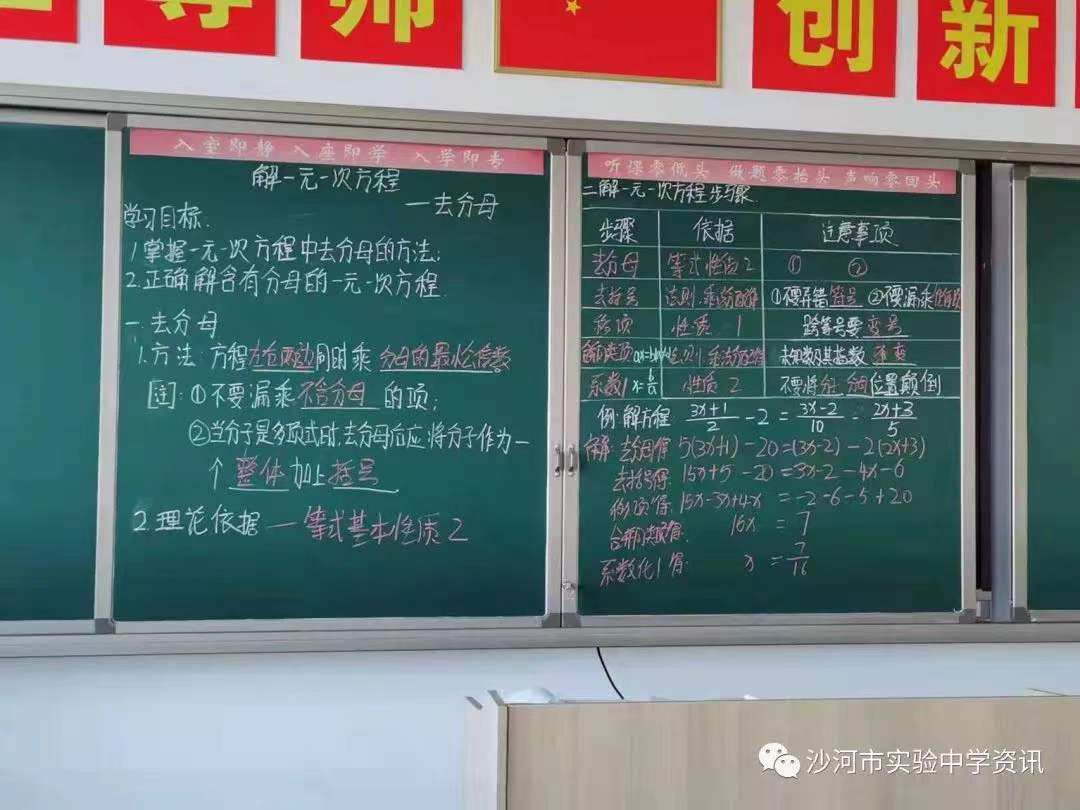 尊 师
创 新
入室即静 入座即学 入学即专
解一元一次方程
一去分母
学习目标.
1.掌握一元一次方程中去分母的方法;
2.正确解含有分母的一元一次方程.
一.去分母
1.方法:方程左右两边同时乘 分母的最小公倍数
[注]:①不要漏乘不含分母 的项;
②当分子是多项式时,去分母后应将分子作为一
个 整体 加上括号
2.理论依据 一 等式基本性质2
听课零低头 做题零抬头 声响零回头
二解一元一次方程步骤
步骤 依据 注意事项
去分母 等式性质2 ① ②
去括号 法则.乘法分配律 ①不要弄错符号 ②不要漏乘
移项 性质1 跨等号要变号
法则 乘法分配律 未知数及其指数不变
系数 性质2 不要将分子分母位置颠倒
例:解方程 (3x+1)/2 - 2 = (3x-2)/10 - (2x+3)/5
解:去分母得 5(3x+1)-20=(3x-2)-2(2x+3)
去括号得 15x+5-20=3x-2-4x-6
移项得: 15x-3x+4x=-2-6-5+20
合并同类项得: 16x = 7
系数化1得: x = 7/16
沙河市实验中学资讯